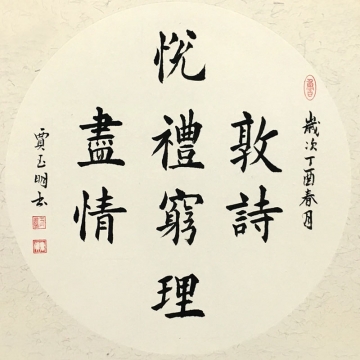 歲次丁酉春月
敦詩
悅禮窮理
盡情
賈玉明書